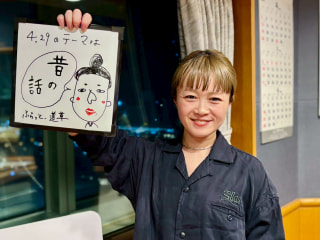 4.29のテーマは
昔の話
ふらっと、道草